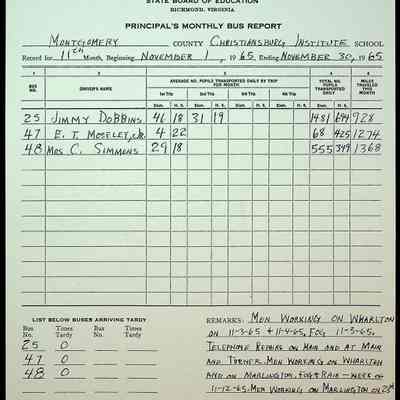 STATE BOARD OF EDUCATION
RICHMOND, VIRGINIA
PRINCIPAL'S MONTHLY BUS REPORT
MONTGOMERY COUNTY CHRISTIANSBURG INSTITUTE SCHOOL
Record for 11th Month, Beginning NOVEMBER 1, 1965, Ending NOVEMBER 30, 1965
1 2 3 5 6
BUS NO. DRIVER'S NAME AVERAGE NO. PUPILS TRANSPORTED DAILY BY TRIP FOR MONTH TOTAL NO. PUPILS TRANSPORTED DAILY MILES TRAVELED THIS MONTH
1st Trip 2nd Trip 3rd Trip 4th Trip
Elem. H. S. Elem. H. S. Elem. H. S. Elem. H. S. Elem. H. S.
25 JIMMY DOBBINS 46 18 31 19 1481 694 928
47 E. T. MOSELEY, JR. 4 22 68 425 1274
48 MRS C. SIMMONS 29 18 555 349 1368
LIST BELOW BUSES ARRIVING TARDY
Bus No. Times Tardy Bus No. Times Tardy
25 0
47 0
48 0
REMARKS: MEN WORKING ON WHARLTON
ON 11-3-65 + 11-4-65, FOG 11-3-65.
TELEPHONE REPAIRS ON MAIN AND AT MAIN
AND TURNER. MEN WORKING ON WHARLTON
AND ON MARLINGTON. FOG + RAIN - WEEK OF
11-12-65. MEN WORKING ON MARLINGTON ON 23rd